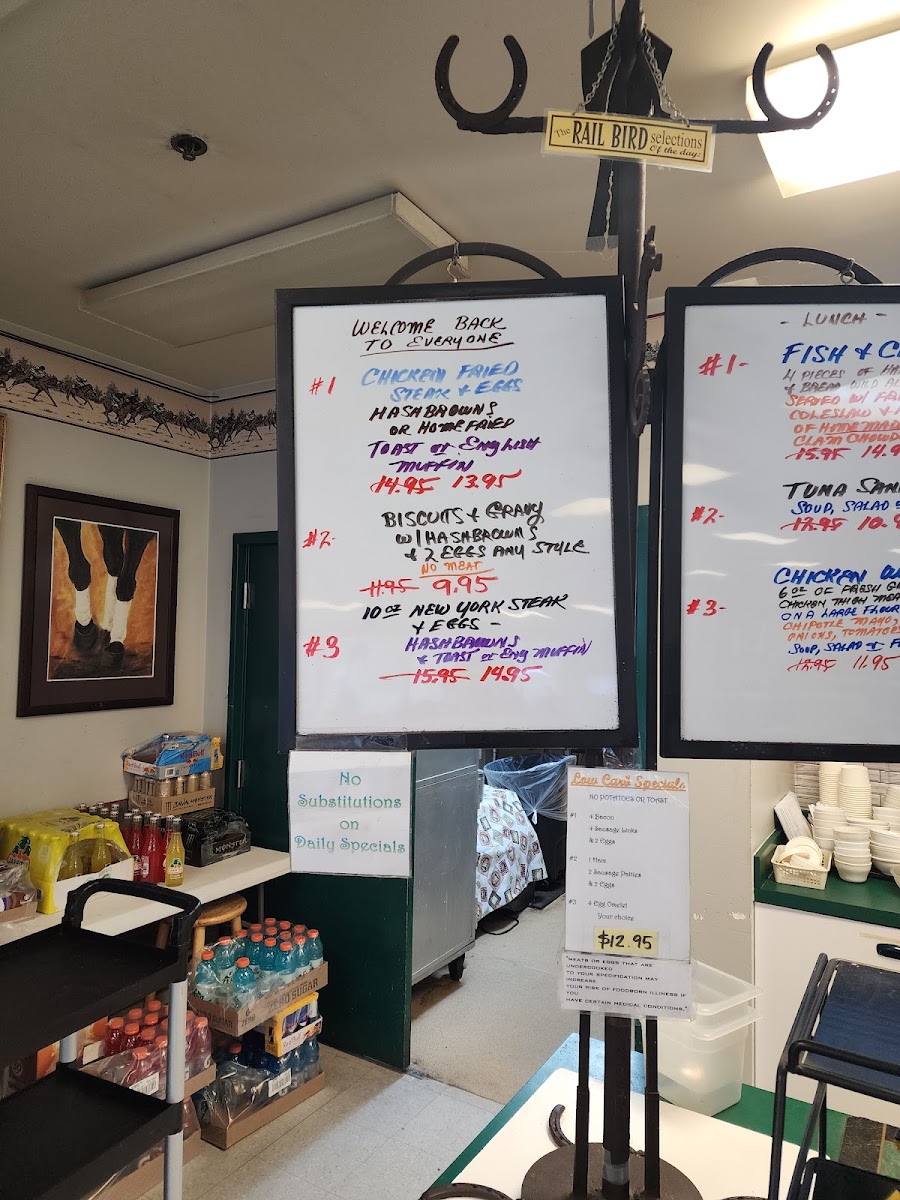 The RAIL BIRD selections
Of the day:
WELCOME BACK
TO EVERYONE
#1 CHICKEN FRIED
STEAK & EGGS
HASHBROWNS
OR HOME FRIED
TOAST or ENGLISH
MUFFIN
14.95 13.95
#2- BISCUITS & GRAVY
W/HASHBROWNS
& 2 EGGS ANY STYLE
NO MEAT
11.95 9.95
10 oz NEW YORK STEAK
& EGGS -
#3 HASHBROWNS
& TOAST or ENG MUFFIN
15.95 14.95
- LUNCH -
#1- FISH & C
4 PIECES OF
& BREAD WILD
SERVED W/
COLESLAW &
OF HOMEMAD
CLAM CHOWD
15.95 14.9
#2- TUNA SAN
SOUP, SALAD
12.95 10.9
#3- CHICKEN
6 oz OF FRESH
CHICKEN THIGH MEA
ON A LARGE FLOUR
CHIPOTLE MAYO,
ONIONS, TOMATOES
SOUP, SALAD or F
12.95 11.95
No
Substitutions
on
Daily Specials
Low Carb Specials
NO POTATOES OR TOAST
#1 4 Bacon
4 Sausage Links
& 2 Eggs
#2 1 Ham
2 Sausage Patties
& 2 Eggs
#3 4 Egg Omelet
Your choice
$12.95
"MEATS OR EGGS THAT ARE
UNDERCOOKED
TO YOUR SPECIFICATION MAY
INCREASE
YOUR RISK OF FOODBORN ILLNESS IF
YOU
HAVE CERTAIN MEDICAL CONDITIONS."
JAVA MONSTER
MONSTER
ZERO SUGAR